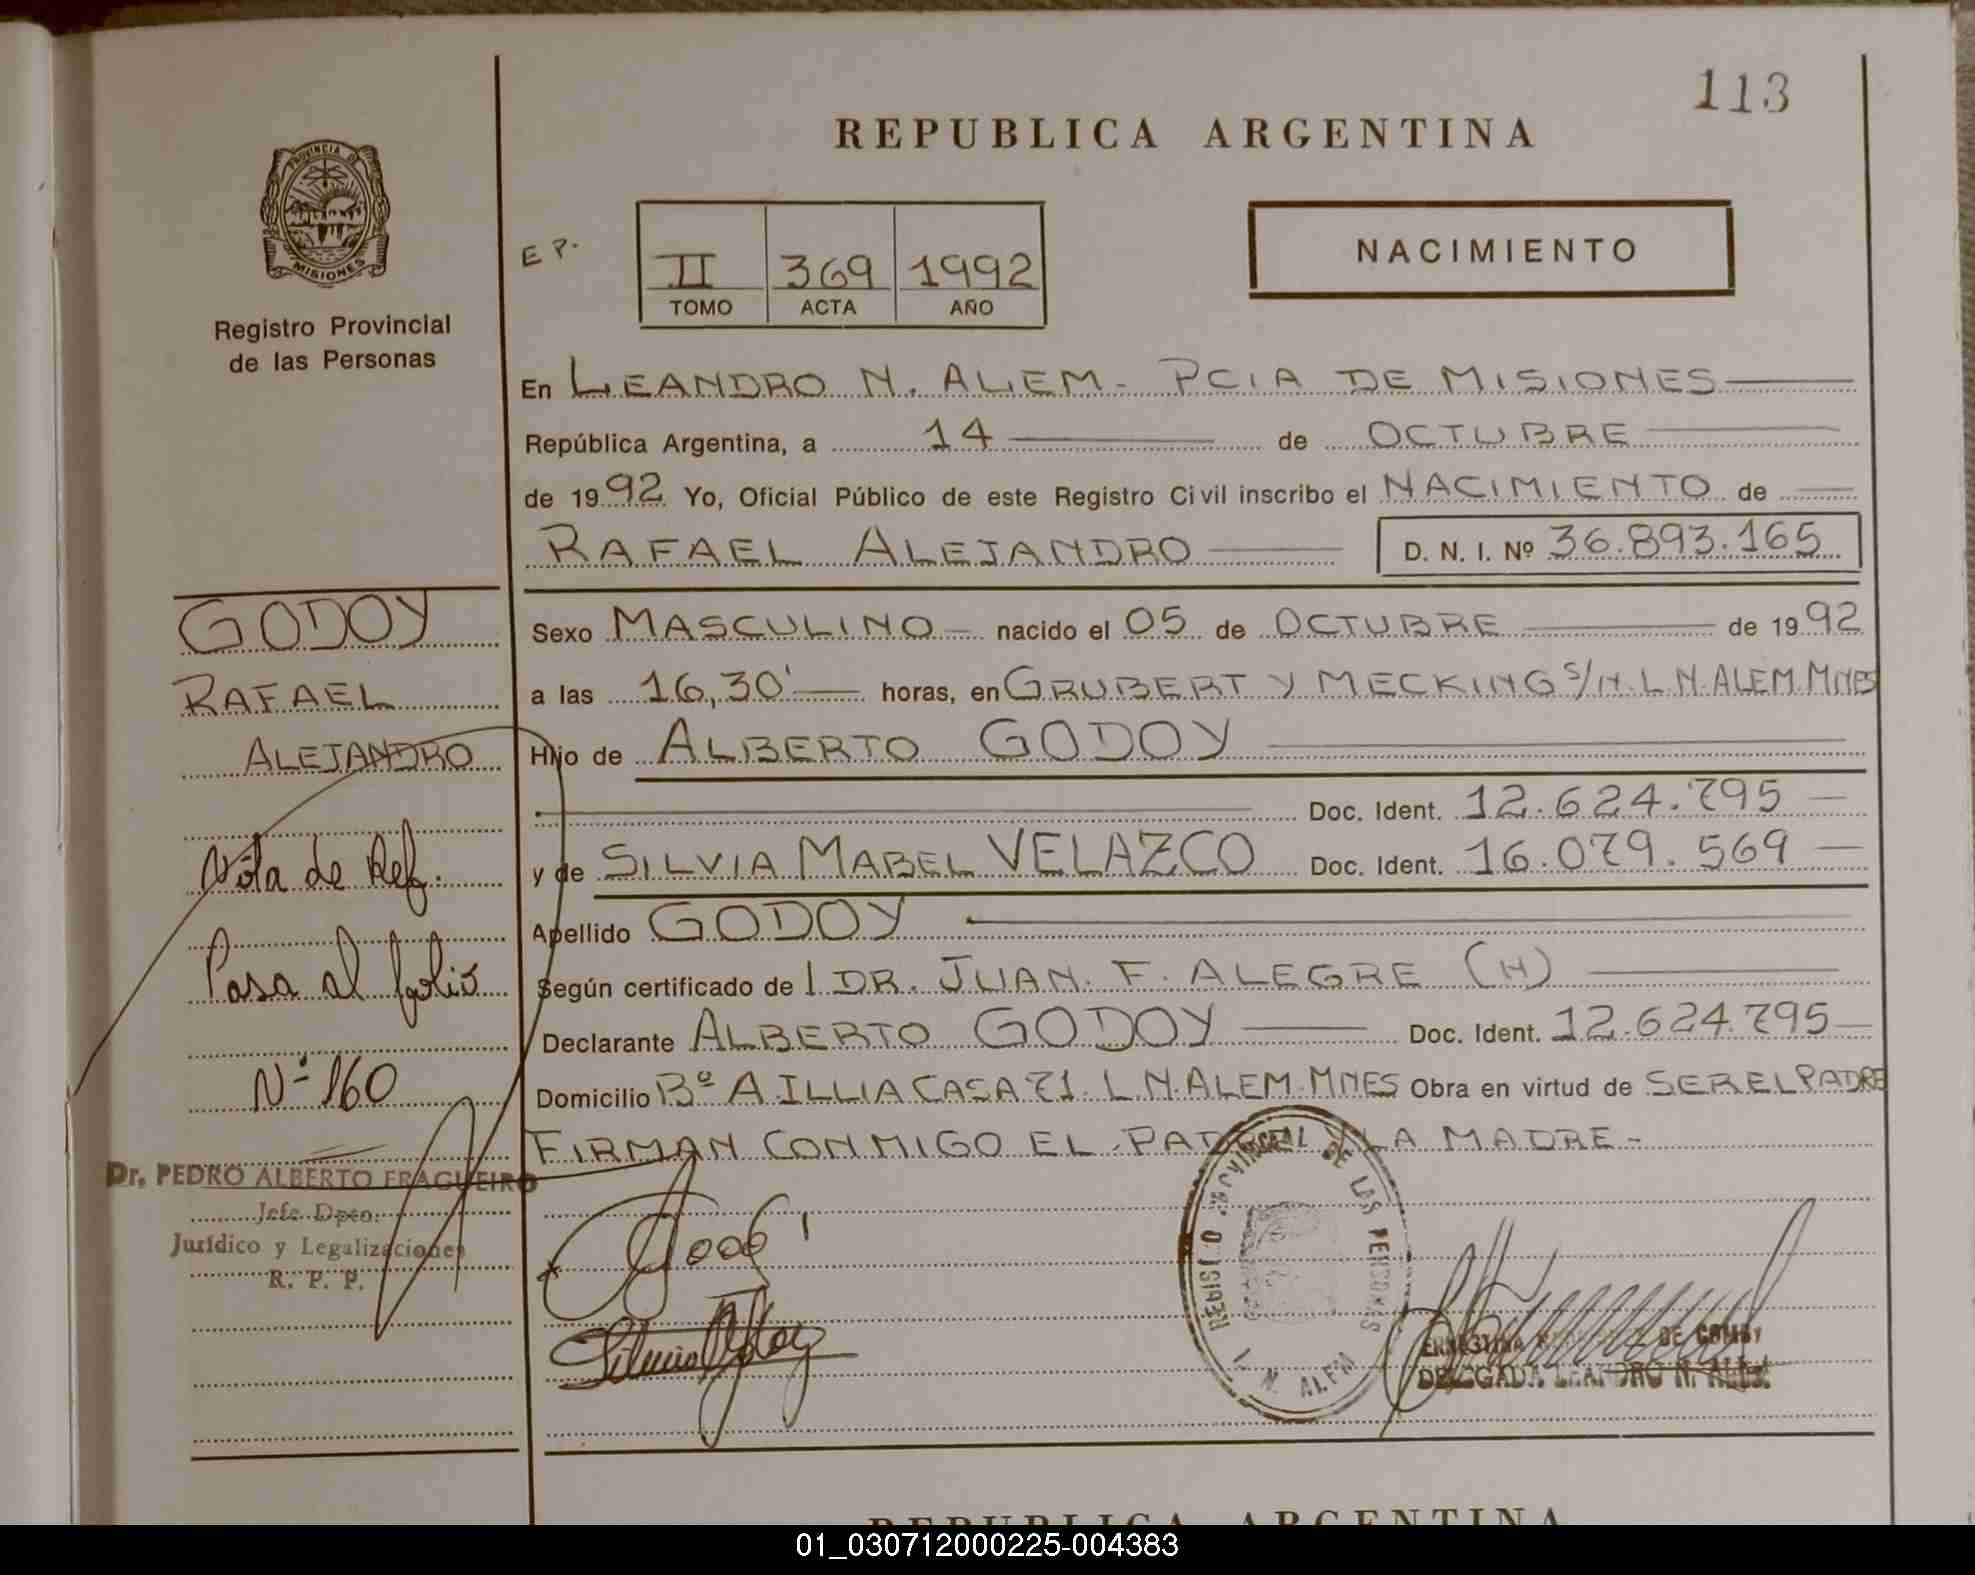 113
REPUBLICA ARGENTINA
PROVINCIA DE
MISIONES
Registro Provincial
de las Personas
E P.
II 369 1992
TOMO ACTA AÑO
NACIMIENTO
En LEANDRO N. ALEM - PCIA DE MISIONES
República Argentina, a 14 de OCTUBRE
de 1992 Yo, Oficial Público de este Registro Civil inscribo el NACIMIENTO de
RAFAEL ALEJANDRO D. N. I. Nº 36.893.165
GODOY
RAFAEL
ALEJANDRO
Nota de Ref.
Pasa al folio
Nº 160
Dr. PEDRO ALBERTO FRAGUEIRO
Jefe Dpto.
Jurídico y Legalizaciones
R. P. P.
Sexo MASCULINO - nacido el 05 de OCTUBRE de 1992
a las 16,30' horas, en GRUBERT Y MECKING S/N. L.N. ALEM. MNES
Hijo de ALBERTO GODOY
Doc. Ident. 12.624.795
y de SILVIA MABEL VELAZCO Doc. Ident. 16.079.569
Apellido GODOY
Según certificado de l DR. JUAN F. ALEGRE (H)
Declarante ALBERTO GODOY Doc. Ident. 12.624.795
Domicilio Bº A. ILLIA CASA 71. L.N. ALEM. MNES Obra en virtud de SER EL PADRE
FIRMAN CONMIGO EL PADRE Y LA MADRE -
REGISTRO PROVINCIAL DE LAS PERSONAS
L. N. ALEM
DE COMBY
DELEGADA LEANDRO N. ALEM
REPUBLICA ARGENTINA
01_030712000225-004383